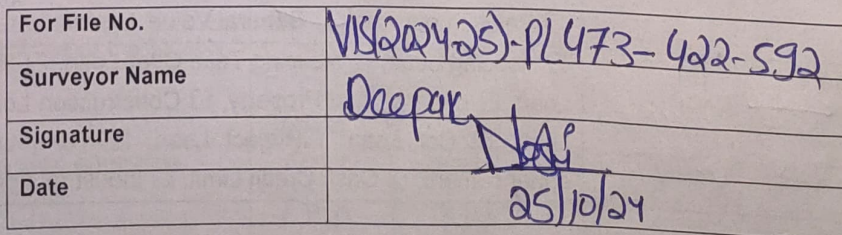 For File No. VIS(2024-25)-PL473-422-592
Surveyor Name Deepak
Signature
Date 25/10/24